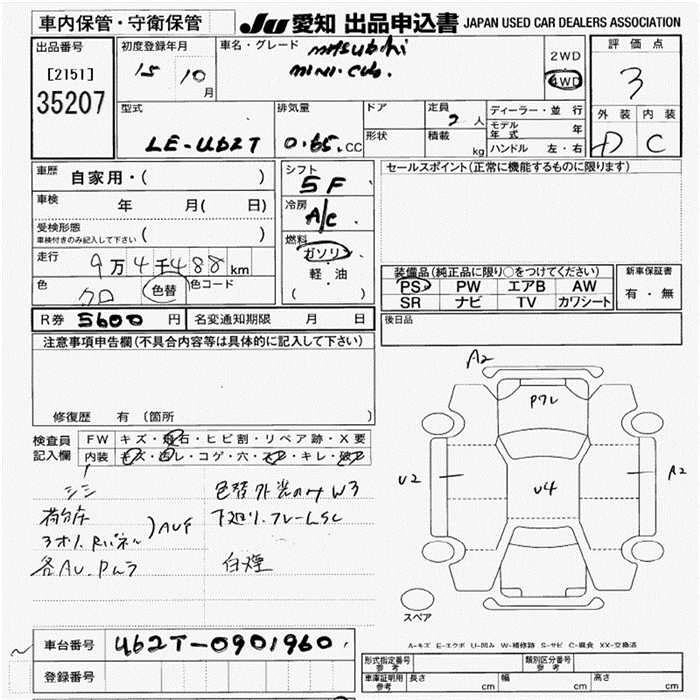 車内保管・守衛保管
JU 愛知 出品申込書 JAPAN USED CAR DEALERS ASSOCIATION
出品番号
[2151]
35207
初度登録年月
15 10 月
車名・グレード
mitsubishi
MINI.Cub.
2WD
4WD
評価点
3
外装 内装
D C
型式
LE-U62T
排気量
0.65.CC
ドア
形状
定員
2 人
積載
kg
ディーラー・並行
モデル年式 年
ハンドル 左・右
車歴 自家用・( )
車検 年 月( 日)
受検形態
車検付きのみ記入して下さい ( )
走行 9万4千488 km
色 クロ 色替 色コード
シフト
5F
冷房
A/C
燃料
ガソリン
軽・油
( )
セールスポイント(正常に機能するものに限ります)
装備品(純正品に限り○をつけてください)
PS PW エアB AW
SR ナビ TV カワシート
新車保証書
有・無
R券 5600 円 名変通知期限 月 日
後日品
注意事項申告欄(不具合内容等は具体的に記入して下さい)
修復歴 有 〔箇所 〕
検査員記入欄
FW キズ・飛石・ヒビ割・リペア跡・X要
内装 キズ・汚レ・コゲ・穴・スレ・キレ・破レ
シミ
荷台 AUキ
3オリ.Rパネル
各AU.Pムラ
色替外光のみW3
下廻り.フレームSC
白煙
A2
Pクレ
U2
U4
A2
スペア
A-キズ E-エクボ U-凹み W-補修跡 S-サビ C-腐食 XX-交換済
車台番号 U62T-0901960
登録番号
形式指定番号 参考
類別区分番号 参考
車庫証明 参考 長さ cm 幅 cm 高さ cm